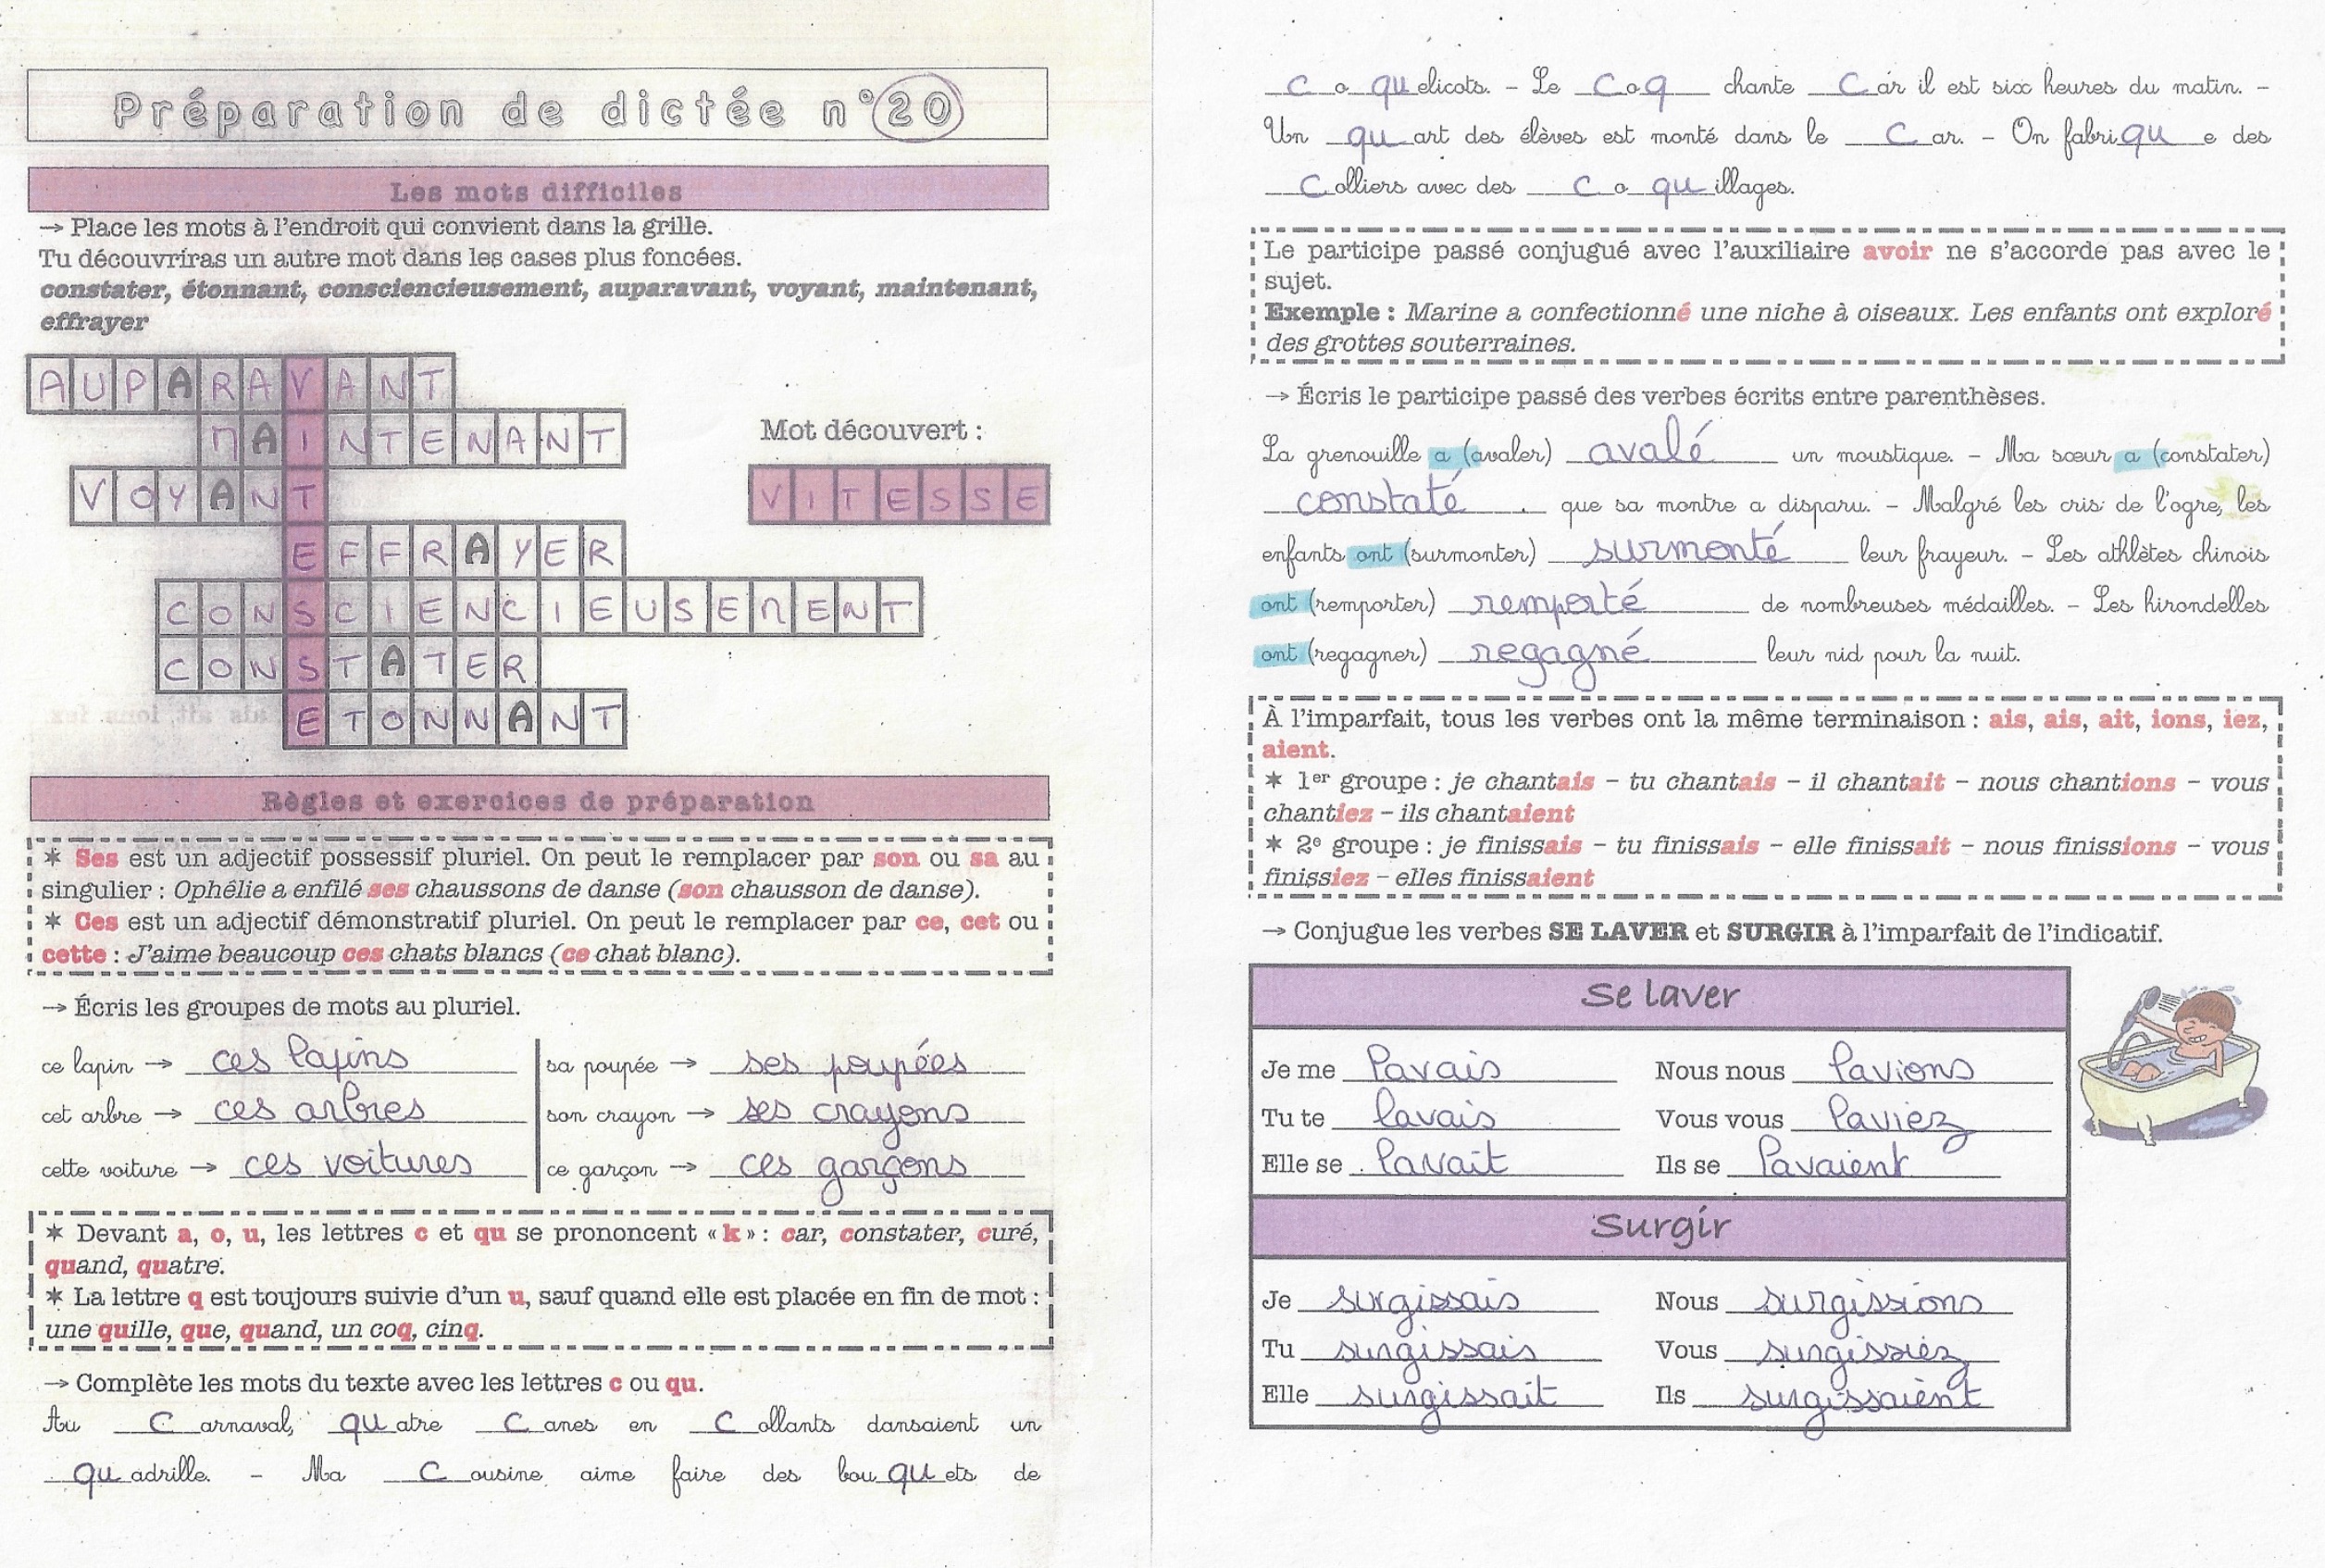 Préparation de dictée n°20
Les mots difficiles
→ Place les mots à l'endroit qui convient dans la grille.
Tu découvriras un autre mot dans les cases plus foncées.
constater, étonnant, consciencieusement, auparavant, voyant, maintenant,
effrayer
AUPARAVANT
MAINTENANT
Mot découvert :
VOYANT
VITESSE
EFFRAYER
CONSCIENCIEUSEMENT
CONSTATER
ETONNANT
Règles et exercices de préparation
✶ Ses est un adjectif possessif pluriel. On peut le remplacer par son ou sa au
singulier : Ophélie a enfilé ses chaussons de danse (son chausson de danse).
✶ Ces est un adjectif démonstratif pluriel. On peut le remplacer par ce, cet ou
cette : J'aime beaucoup ces chats blancs (ce chat blanc).
→ Écris les groupes de mots au pluriel.
ce lapin → ces lapins
sa poupée → ses poupées
cet arbre → ces arbres
son crayon → ses crayons
cette voiture → ces voitures
ce garçon → ces garçons
✶ Devant a, o, u, les lettres c et qu se prononcent « k » : car, constater, curé,
quand, quatre.
✶ La lettre q est toujours suivie d'un u, sauf quand elle est placée en fin de mot :
une quille, que, quand, un coq, cinq.
→ Complète les mots du texte avec les lettres c ou qu.
Au carnaval, quatre canes en collants dansaient un
quadrille. - Ma cousine aime faire des bouquets de
coquelicots. - Le coq chante car il est six heures du matin. -
Un quart des élèves est monté dans le car. - On fabrique des
colliers avec des coquillages.
Le participe passé conjugué avec l'auxiliaire avoir ne s'accorde pas avec le
sujet.
Exemple : Marine a confectionné une niche à oiseaux. Les enfants ont exploré
des grottes souterraines.
→ Écris le participe passé des verbes écrits entre parenthèses.
La grenouille a (avaler) avalé un moustique. - Ma sœur a (constater)
constaté que sa montre a disparu. - Malgré les cris de l'ogre, les
enfants ont (surmonter) surmonté leur frayeur. - Les athlètes chinois
ont (remporter) remporté de nombreuses médailles. - Les hirondelles
ont (regagner) regagné leur nid pour la nuit.
À l'imparfait, tous les verbes ont la même terminaison : ais, ais, ait, ions, iez,
aient.
✶ 1er groupe : je chantais - tu chantais - il chantait - nous chantions - vous
chantiez - ils chantaient
✶ 2e groupe : je finissais - tu finissais - elle finissait - nous finissions - vous
finissiez - elles finissaient
→ Conjugue les verbes SE LAVER et SURGIR à l'imparfait de l'indicatif.
Se laver
Je me lavais
Nous nous lavions
Tu te lavais
Vous vous laviez
Elle se lavait
Ils se lavaient
Surgir
Je surgissais
Nous surgissions
Tu surgissais
Vous surgissiez
Elle surgissait
Ils surgissaient